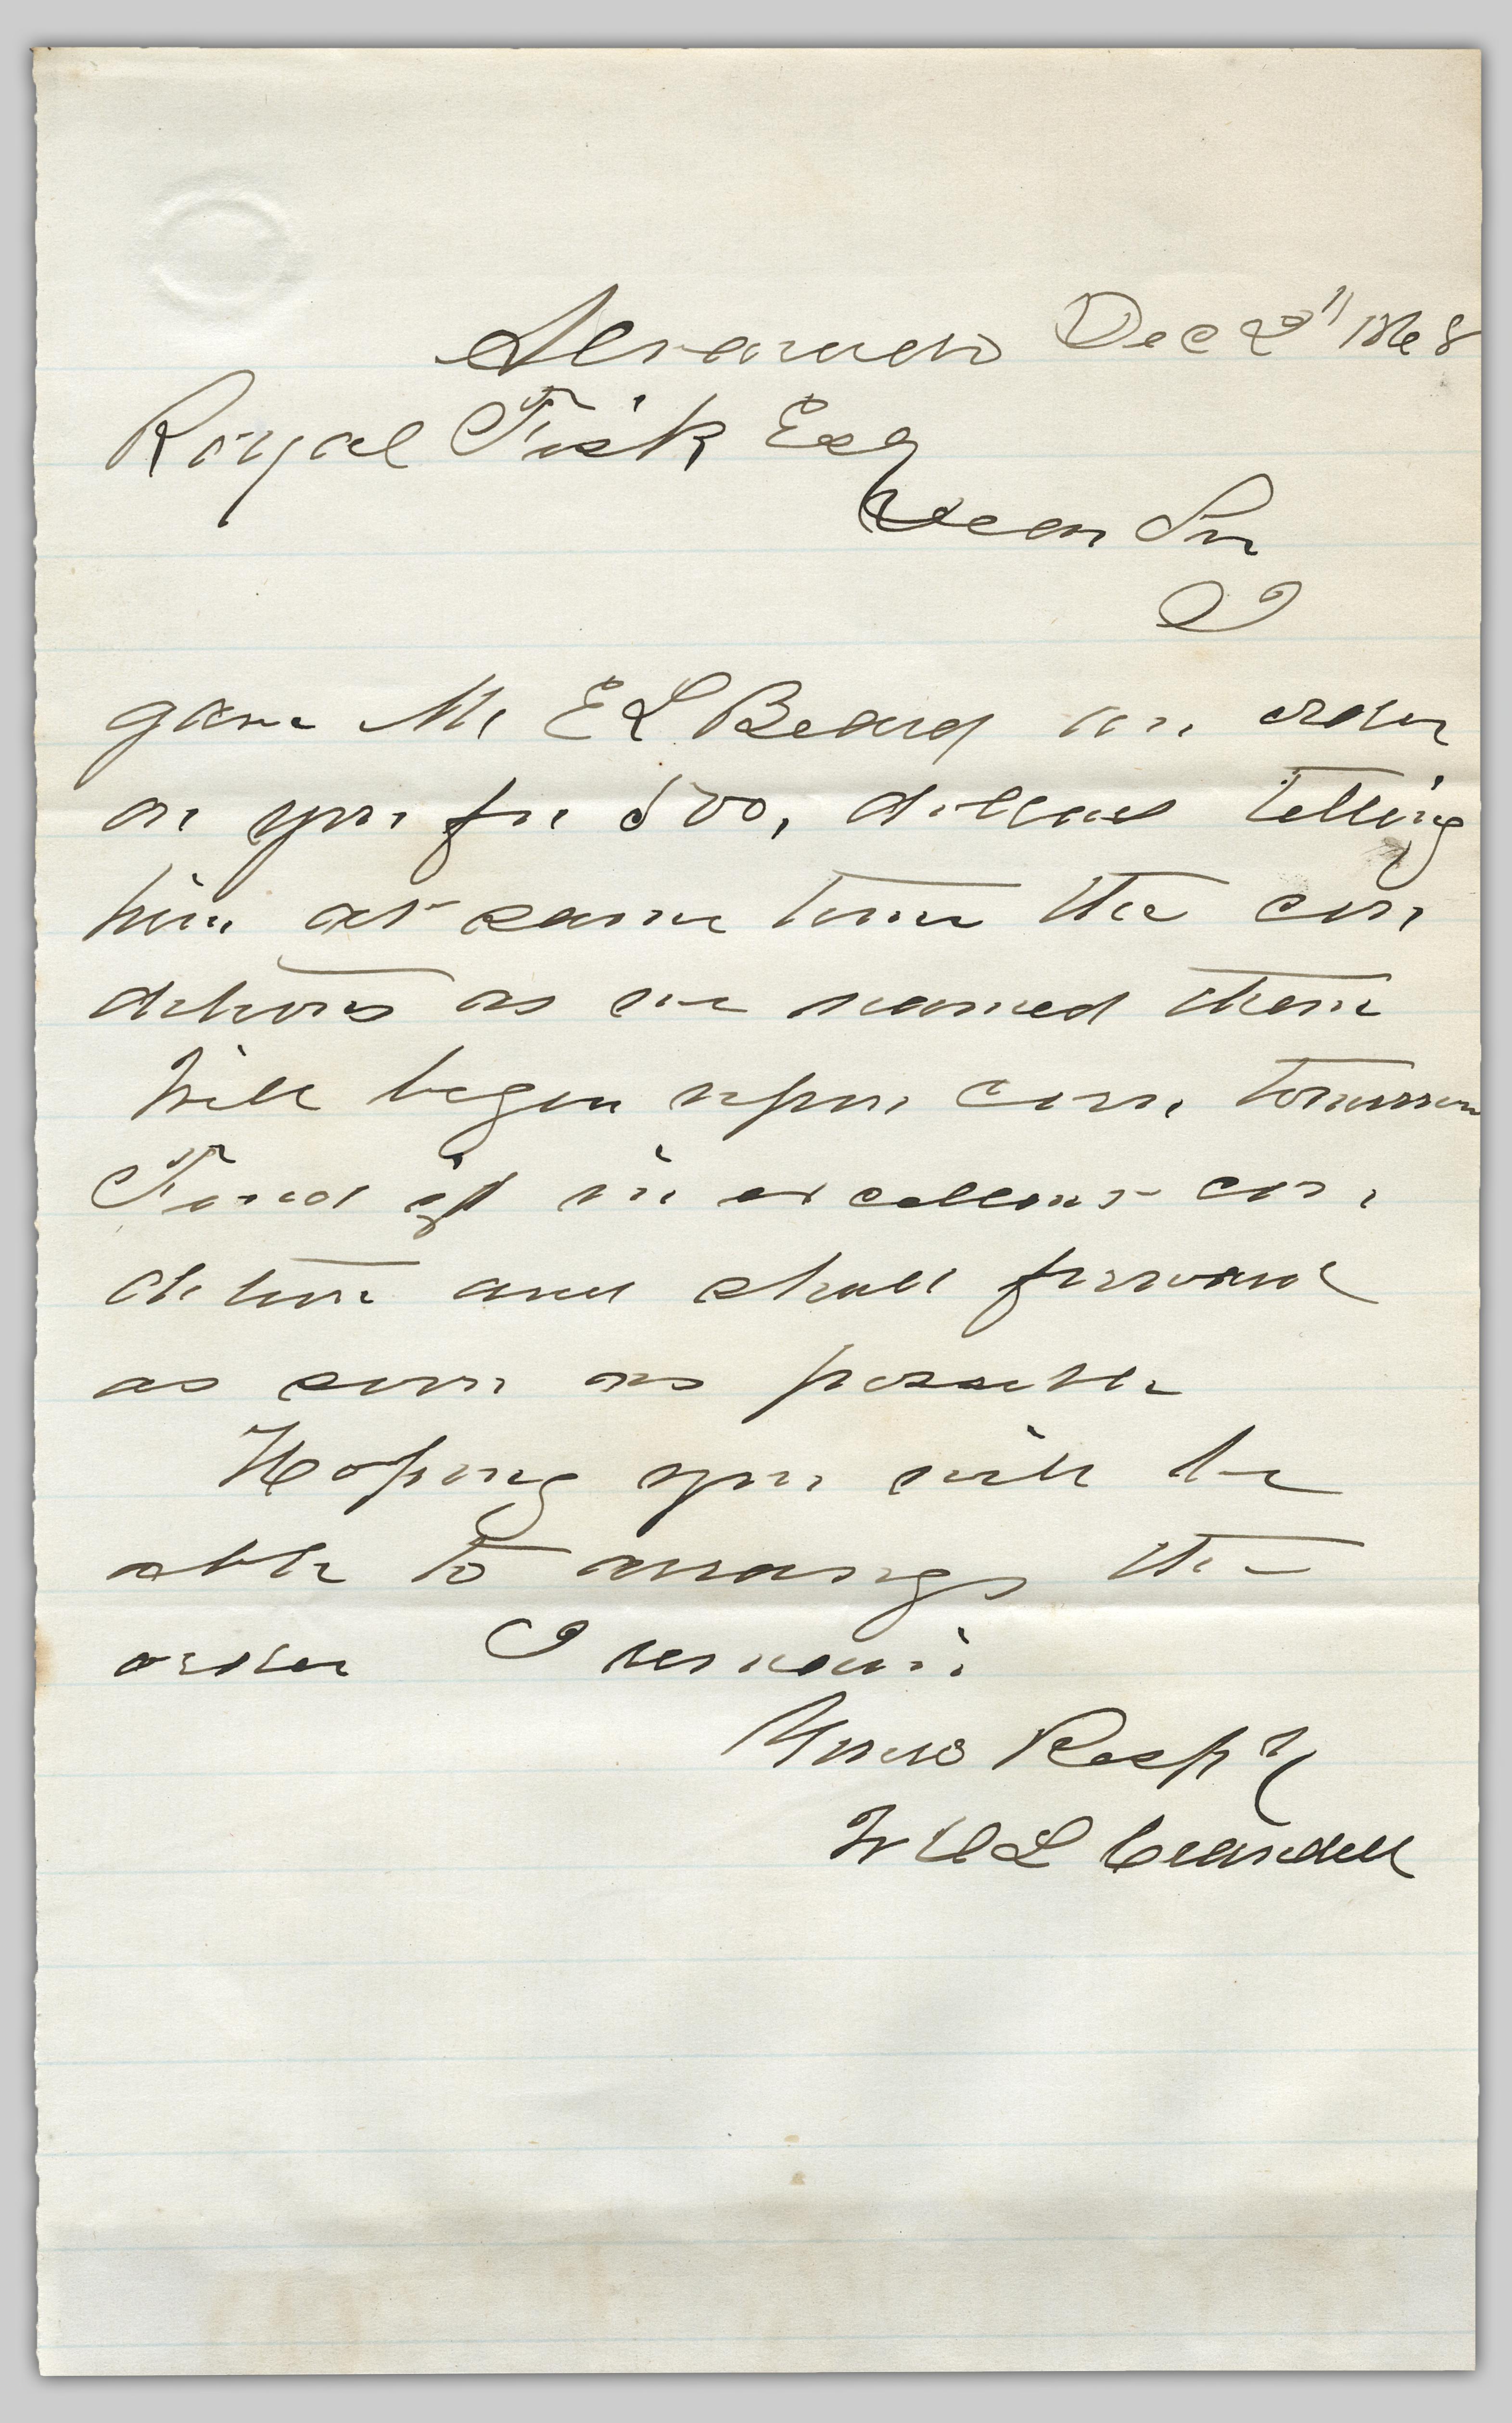 Alvarado Dec 2d 1868
Royal Fisk Esq
Dear Sir
I
gave Mr E L Beard an order
on you for 500, dollars telling
him at same time the con
ditions as we named them
Will begin upon corn tomorrow
Find it in excellent con
dition and shall forward
as soon as possible
Hoping you will be
able to arrange the
order I remain
Yours Respy
W L Crandell